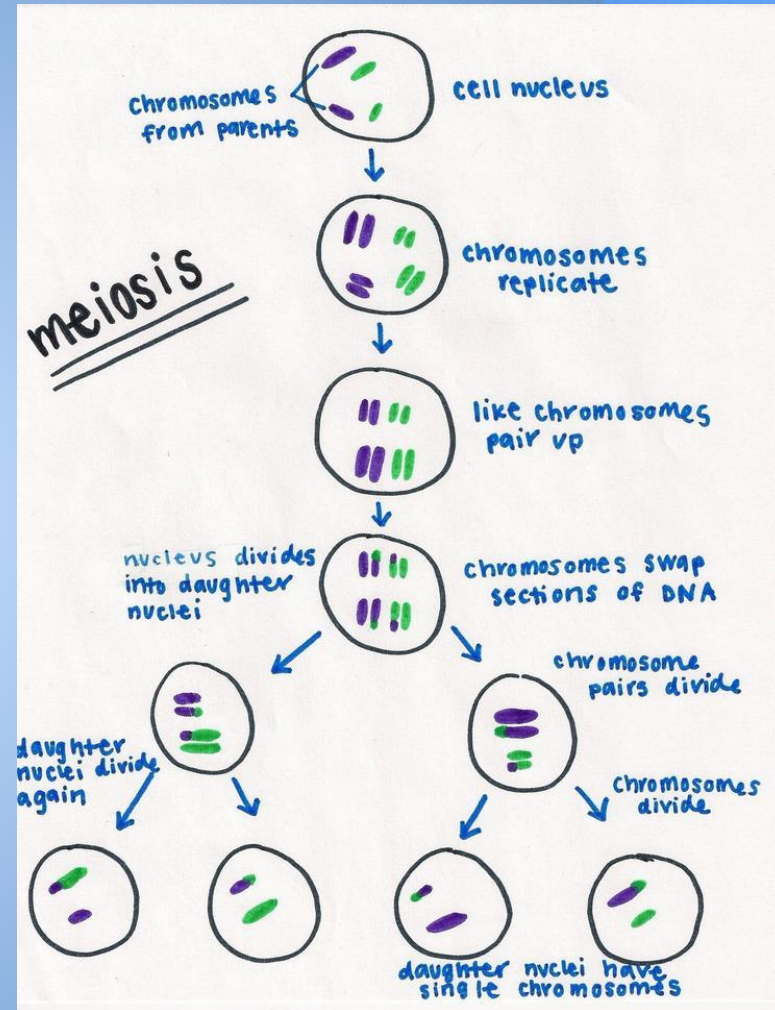 chromosomes
from parents
cell nucleus
meiosis
chromosomes
replicate
like chromosomes
pair up
nucleus divides
into daughter
nuclei
chromosomes swap
sections of DNA
chromosome
pairs divide
daughter
nuclei divide
again
chromosomes
divide
daughter nuclei have
single chromosomes